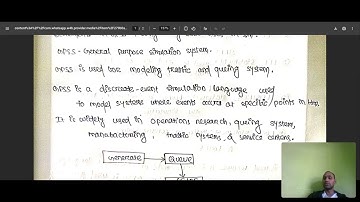 GPSS - General Purpose simulation system.
GPSS is used for modeling traffic and queing system.
GPSS is a discreate-event simulation language used
to model systems where events occurs at specific points in time
It is widely used in operations research, queing system,
manufacturing, traffic systems & service centers.
Generate
Queue